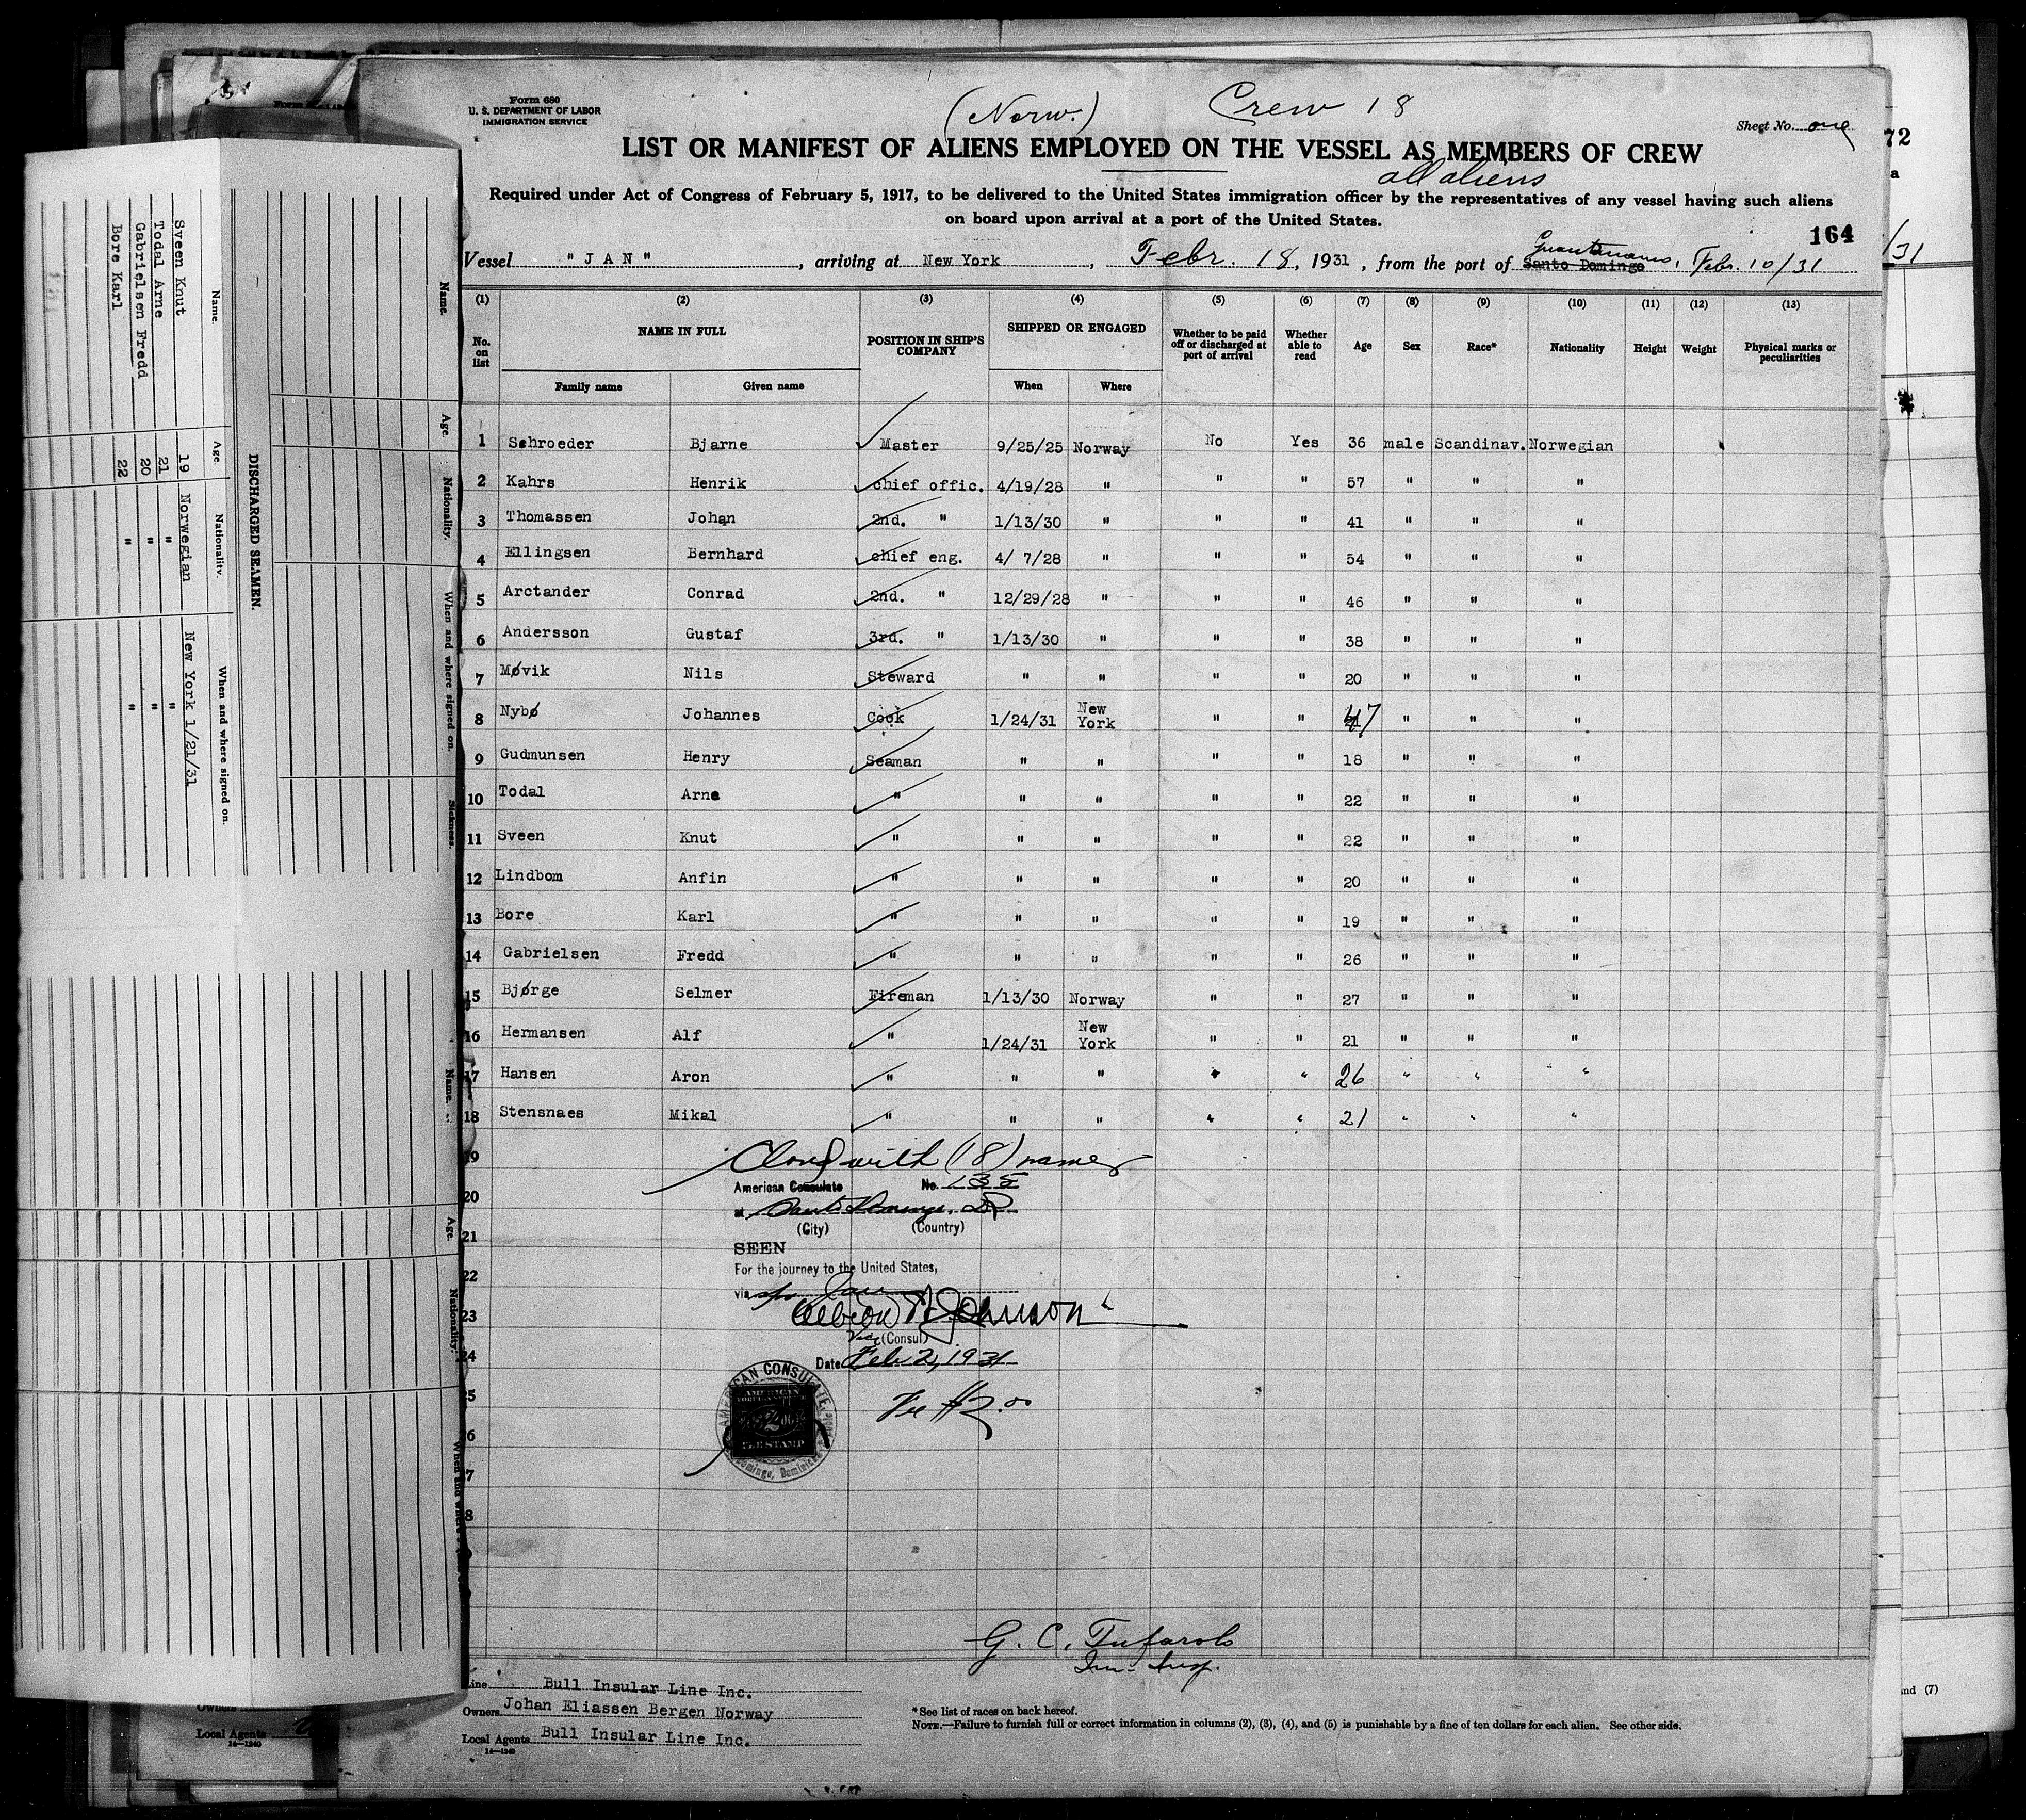 Form 680
U. S. DEPARTMENT OF LABOR
IMMIGRATION SERVICE
(Norw.)
Crew 18
Sheet No. one
LIST OR MANIFEST OF ALIENS EMPLOYED ON THE VESSEL AS MEMBERS OF CREW
all aliens
Required under Act of Congress of February 5, 1917, to be delivered to the United States immigration officer by the representatives of any vessel having such aliens
on board upon arrival at a port of the United States.
164
Vessel "JAN", arriving at New York, Febr. 18, 1931, from the port of Santo Domingo Guantanamo, Febr. 10/31
(1) (2) (3) (4) (5) (6) (7) (8) (9) (10) (11) (12) (13)
No. on list NAME IN FULL POSITION IN SHIP'S COMPANY SHIPPED OR ENGAGED Whether to be paid off or discharged at port of arrival Whether able to read Age Sex Race* Nationality Height Weight Physical marks or peculiarities
Family name Given name When Where
1 Schroeder Bjarne Master 9/25/25 Norway No Yes 36 male Scandinav. Norwegian
2 Kahrs Henrik chief offic. 4/19/28 " " " 57 " " "
3 Thomassen Johan 2nd. " 1/13/30 " " " 41 " " "
4 Ellingsen Bernhard chief eng. 4/ 7/28 " " " 54 " " "
5 Arctander Conrad 2nd. " 12/29/28 " " " 46 " " "
6 Andersson Gustaf 3rd. " 1/13/30 " " " 38 " " "
7 Møvik Nils Steward " " " " 20 " " "
8 Nybø Johannes Cook 1/24/31 New York " " 47 " " "
9 Gudmunsen Henry Seaman " " " " 18 " " "
10 Todal Arne " " " " " 22 " " "
11 Sveen Knut " " " " " 22 " " "
12 Lindbom Anfin " " " " " 20 " " "
13 Bore Karl " " " " " 19 " " "
14 Gabrielsen Fredd " " " " " 26 " " "
15 Bjørge Selmer Fireman 1/13/30 Norway " " 27 " " "
16 Hermansen Alf " 1/24/31 New York " " 21 " " "
17 Hansen Aron " " " " " 26 " " "
18 Stensnaes Mikal " " " " " 21 " " "
19
Closed with (18) names
American Consulate No. 135
20
at Santo Domingo, D.R.
(City) (Country)
21
SEEN
For the journey to the United States,
22
via s/s Jan
23
Johnson
Vice (Consul)
24
Date Feb 2, 1931
AMERICAN CONSULATE
Fee $2.00
FEE STAMP
G. C. Tufarolo
Im. Insp.
Line Bull Insular Line Inc.
Owners Johan Eliassen Bergen Norway
Local Agents Bull Insular Line Inc.
14—1240
*See list of races on back hereof.
NOTE.—Failure to furnish full or correct information in columns (2), (3), (4), and (5) is punishable by a fine of ten dollars for each alien. See other side.
DISCHARGED SEAMEN.
Name. Age. Nationality. When and where signed on.
Sveen Knut 19 Norwegian New York 1/21/31
Todal Arne 21 " "
Gabrielsen Fredd 20 " "
Bore Karl 22 " "
Name. Age. Nationality. When and where signed on. Sickness.
Name. Age. Nationality. When and where
Owners
Local Agents
14—1240
72
a
/31
and (7)